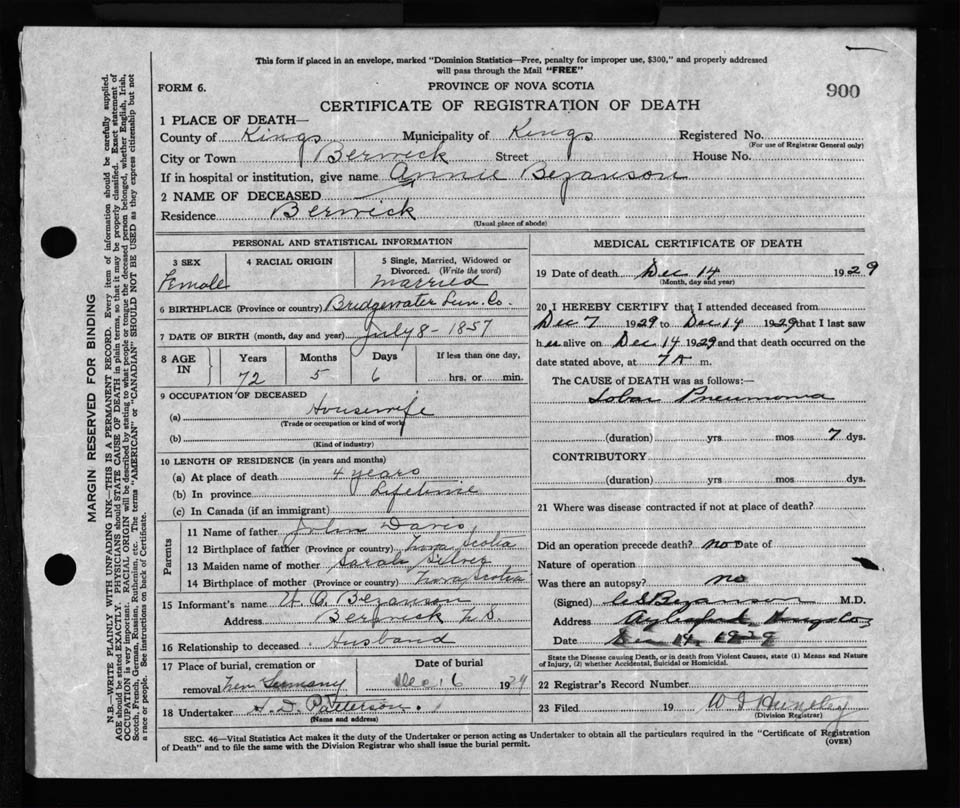 This form if placed in an envelope, marked "Dominion Statistics—Free, penalty for improper use, $300," and properly addressed
will pass through the Mail "FREE"
FORM 6.
PROVINCE OF NOVA SCOTIA
900
CERTIFICATE OF REGISTRATION OF DEATH
1 PLACE OF DEATH—
County of Kings Municipality of Kings Registered No.
(For use of Registrar General only)
City or Town Berwick Street House No.
If in hospital or institution, give name Annie Bezanson
2 NAME OF DECEASED
Residence Berwick
(Usual place of abode)
PERSONAL AND STATISTICAL INFORMATION
3 SEX 4 RACIAL ORIGIN 5 Single, Married, Widowed or
Divorced. (Write the word)
Female Married
6 BIRTHPLACE (Province or country) Bridgewater Lun. Co.
7 DATE OF BIRTH (month, day and year) July 8 - 1857
8 AGE IN Years Months Days If less than one day,
72 5 6 hrs. or min.
9 OCCUPATION OF DECEASED
(a) Housewife
(Trade or occupation or kind of work)
(b)
(Kind of industry)
10 LENGTH OF RESIDENCE (in years and months)
(a) At place of death 4 years
(b) In province Lifetime
(c) In Canada (if an immigrant)
Parents
11 Name of father John Davis
12 Birthplace of father (Province or country) Nova Scotia
13 Maiden name of mother Sarah Silver
14 Birthplace of mother (Province or country) Nova Scotia
15 Informant's name Bezanson
Address Berwick N.S
16 Relationship to deceased Husband
17 Place of burial, cremation or Date of burial
removal New Germany Dec 16 1929
18 Undertaker Patterson.
(Name and address)
MEDICAL CERTIFICATE OF DEATH
19 Date of death Dec 14 1929
(Month, day and year)
20 I HEREBY CERTIFY that I attended deceased from
Dec 7 1929 to Dec 14 1929 that I last saw
her alive on Dec 14 1929 and that death occurred on the
date stated above, at 7 A m.
The CAUSE OF DEATH was as follows:—
Lobar Pneumonia
(duration) yrs mos 7 dys.
CONTRIBUTORY
(duration) yrs mos dys.
21 Where was disease contracted if not at place of death?
Did an operation precede death? no Date of
Nature of operation
Was there an autopsy? no
(Signed) Bezanson M.D.
Address Aylesford Kings Co
Date Dec 14, 1929
State the Disease causing Death, or in death from Violent Causes, state (1) Means and Nature
of Injury, (2) whether Accidental, Suicidal or Homicidal.
22 Registrar's Record Number
23 Filed 19
(Division Registrar)
SEC. 46—Vital Statistics Act makes it the duty of the Undertaker or person acting as Undertaker to obtain all the particulars required in the "Certificate of Registration
of Death" and to file the same with the Division Registrar who shall issue the burial permit.
(OVER)
MARGIN RESERVED FOR BINDING
N.B.—WRITE PLAINLY WITH UNFADING INK—THIS IS A PERMANENT RECORD. Every item of information should be carefully supplied.
AGE should be stated EXACTLY. PHYSICIANS should STATE CAUSE OF DEATH in plain terms, so that it may be properly classified. Exact statement of
OCCUPATION is very important. RACIAL ORIGIN will be described by stating to what people or tongue the deceased person belonged, whether English, Irish,
Scotch, French, German, Russian, Ruthenian, etc. The terms "AMERICAN" or "CANADIAN" SHOULD NOT BE USED as they express citizenship but not
a race or people. See instructions on back of Certificate.